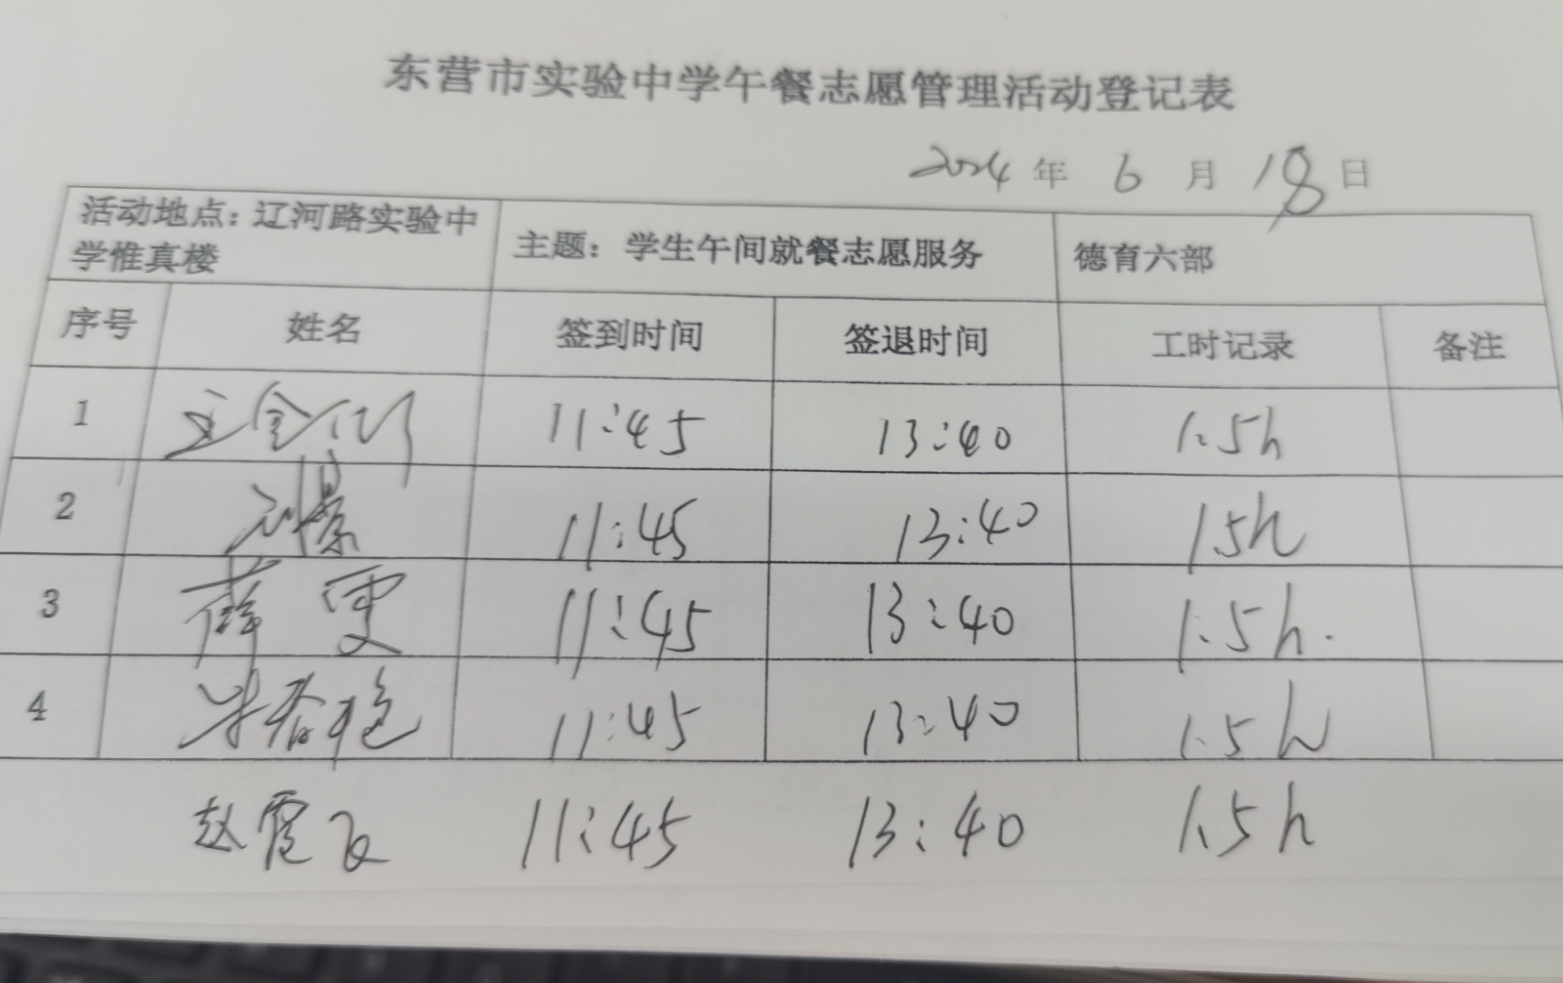 东营市实验中学午餐志愿管理活动登记表
2024年 6 月 18 日
活动地点：辽河路实验中学惟真楼 主题：学生午间就餐志愿服务 德育六部
序号 姓名 签到时间 签退时间 工时记录 备注
1 11:45 13:40 1.5h
2 11:45 13:40 1.5h
3 薛雯 11:45 13:40 1.5h.
4 11:45 13:40 1.5h
赵霞飞 11:45 13:40 1.5h